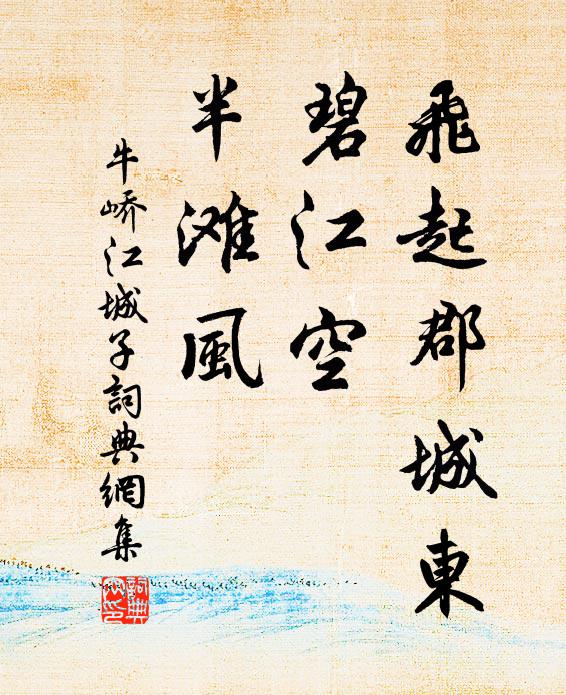 飛起郡城東
碧江空
半滩風
牛峤江城子詞典網集